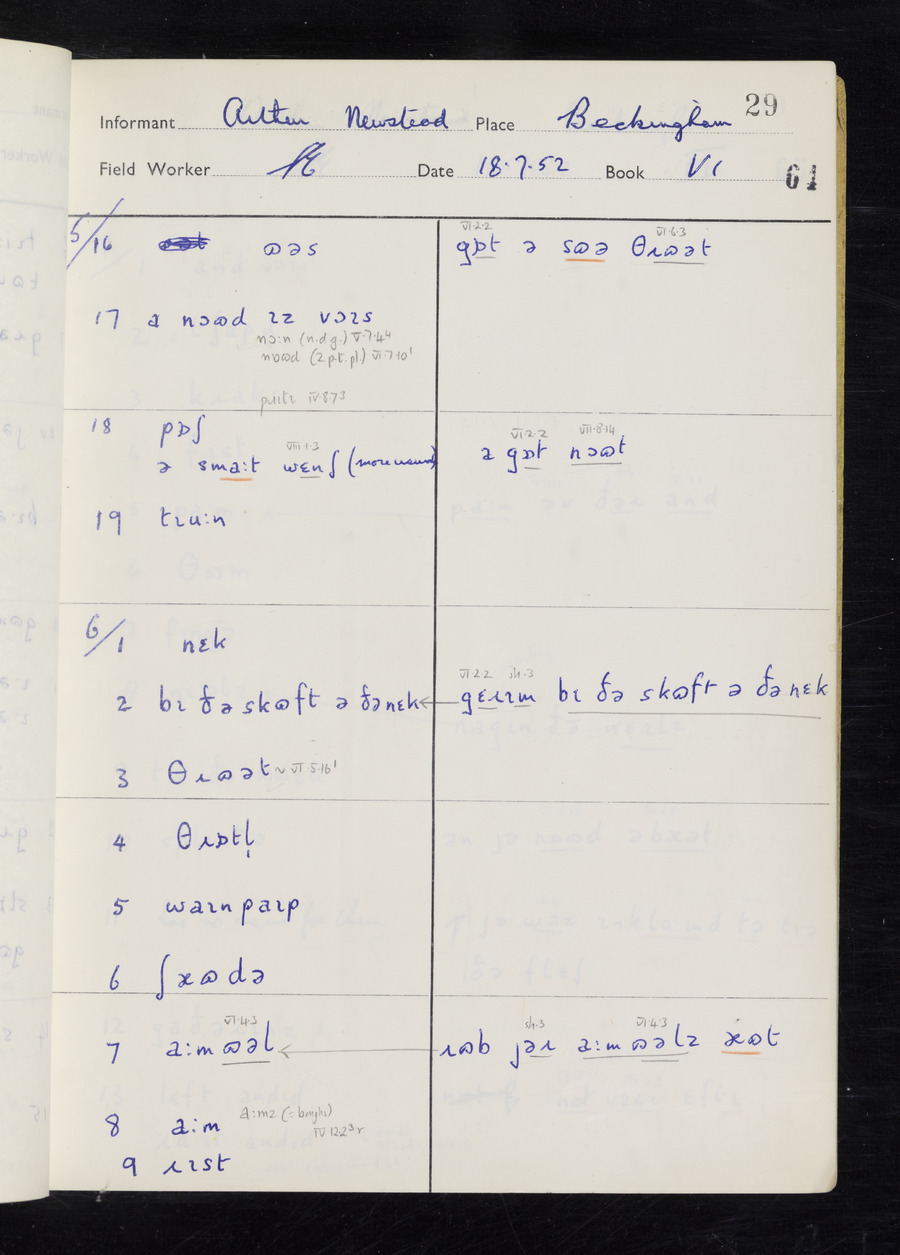 29
Informant Arthur Newstead Place Beckingham
Field Worker Date 18.7.52 Book VI
61
5/16 ɷəs
VI·2·2 VI·6·3
gɒt ə sɷə θɹɷət
17 a nɔɷd ɪz vɔɪs
nɔ:n (n.d.g.) V·7·4⁴
nɒɷd (2 p.t. pl.) VI·7·10¹
IV·8·7³
18 pɒʃ
VIII·1·3
ə sma:t wɛnʃ (more usual)
VI·2·2 VII·8·14
a gɒt nɔɷt
19 tɹu:n
6/1 nɛk
2 bɪ ðə skɷft ə ðə nɛk
VI·2·2 sh·3
gɛɪɹm bɪ ðə skɷft ə ðə nɛk
3 θɹɷət ~ VI·5·16¹
4 θɹɒtl̩
5 waɪnpaɪp
6 ʃæɷdə
VI·4·3
7 a:mɷəl
sh·3 VI·4·3
ɹɷb jəɹ a:mɷəlz æɷt
8 a:m
a:mz (= boughs)
IV·12·2³ r
9 ɹɪst